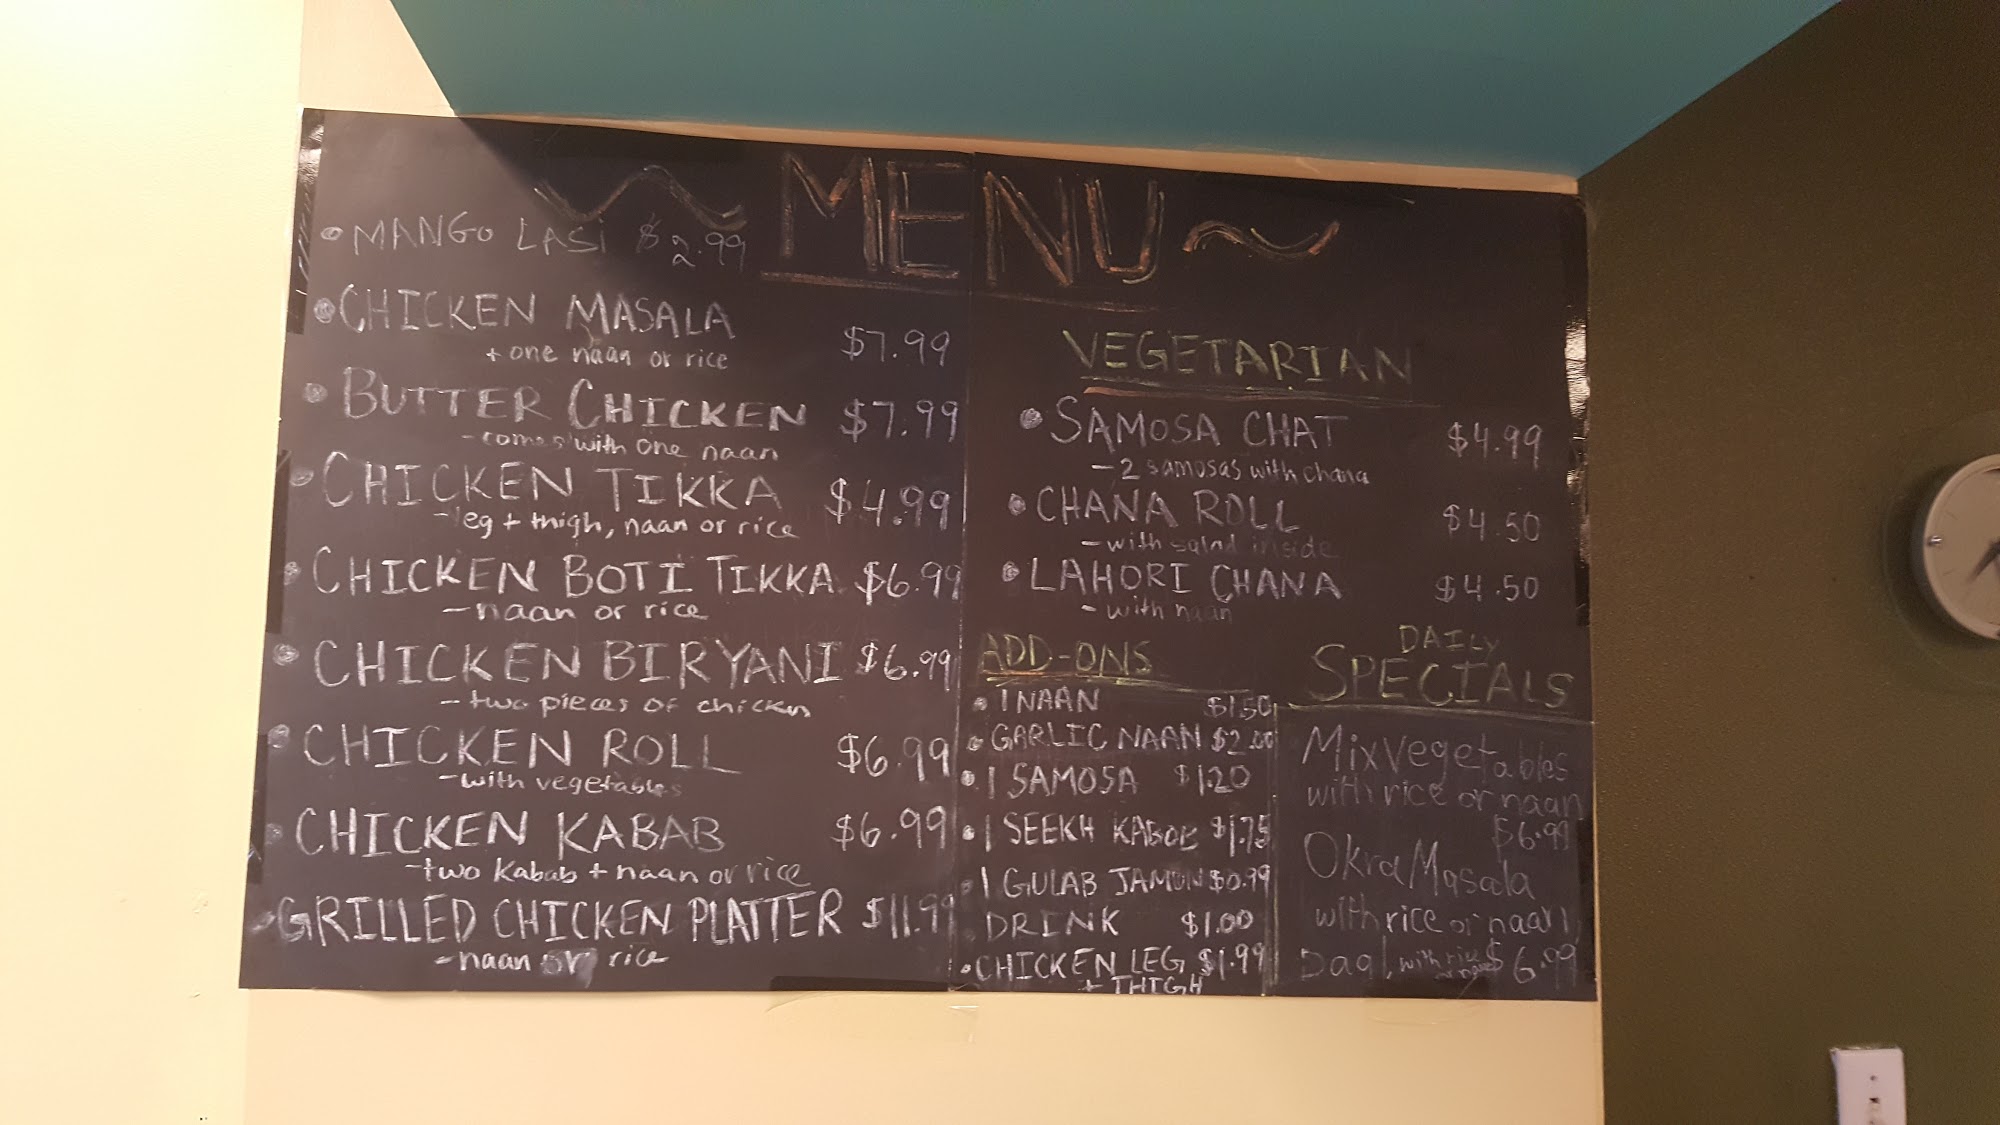 ~ MENU ~
• MANGO LASI $2.99
• CHICKEN MASALA $7.99
+ one naan or rice
• BUTTER CHICKEN $7.99
- comes with one naan
• CHICKEN TIKKA $4.99
- leg + thigh, naan or rice
• CHICKEN BOTI TIKKA $6.99
- naan or rice
• CHICKEN BIRYANI $6.99
- two pieces of chicken
• CHICKEN ROLL $6.99
- with vegetables
• CHICKEN KABAB $6.99
- two Kabab + naan or rice
• GRILLED CHICKEN PLATTER $11.99
- naan or rice
VEGETARIAN
• SAMOSA CHAT $4.99
- 2 samosas with chana
• CHANA ROLL $4.50
- with salad inside
• LAHORI CHANA $4.50
- with naan
ADD-ONS
• 1 NAAN $1.50
• GARLIC NAAN $2.00
• 1 SAMOSA $1.20
• 1 SEEKH KABOB $1.75
• 1 GULAB JAMUN $0.99
DRINK $1.00
• CHICKEN LEG $1.99
+ THIGH
DAILY
SPECIALS
Mix Vegetables
with rice or naan
$6.99
Okra Masala
with rice or naan
Daal, with rice $6.99
or naan